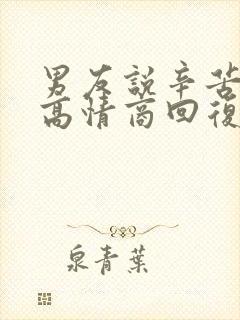 男友說辛苦
高情商回復
泉青葉